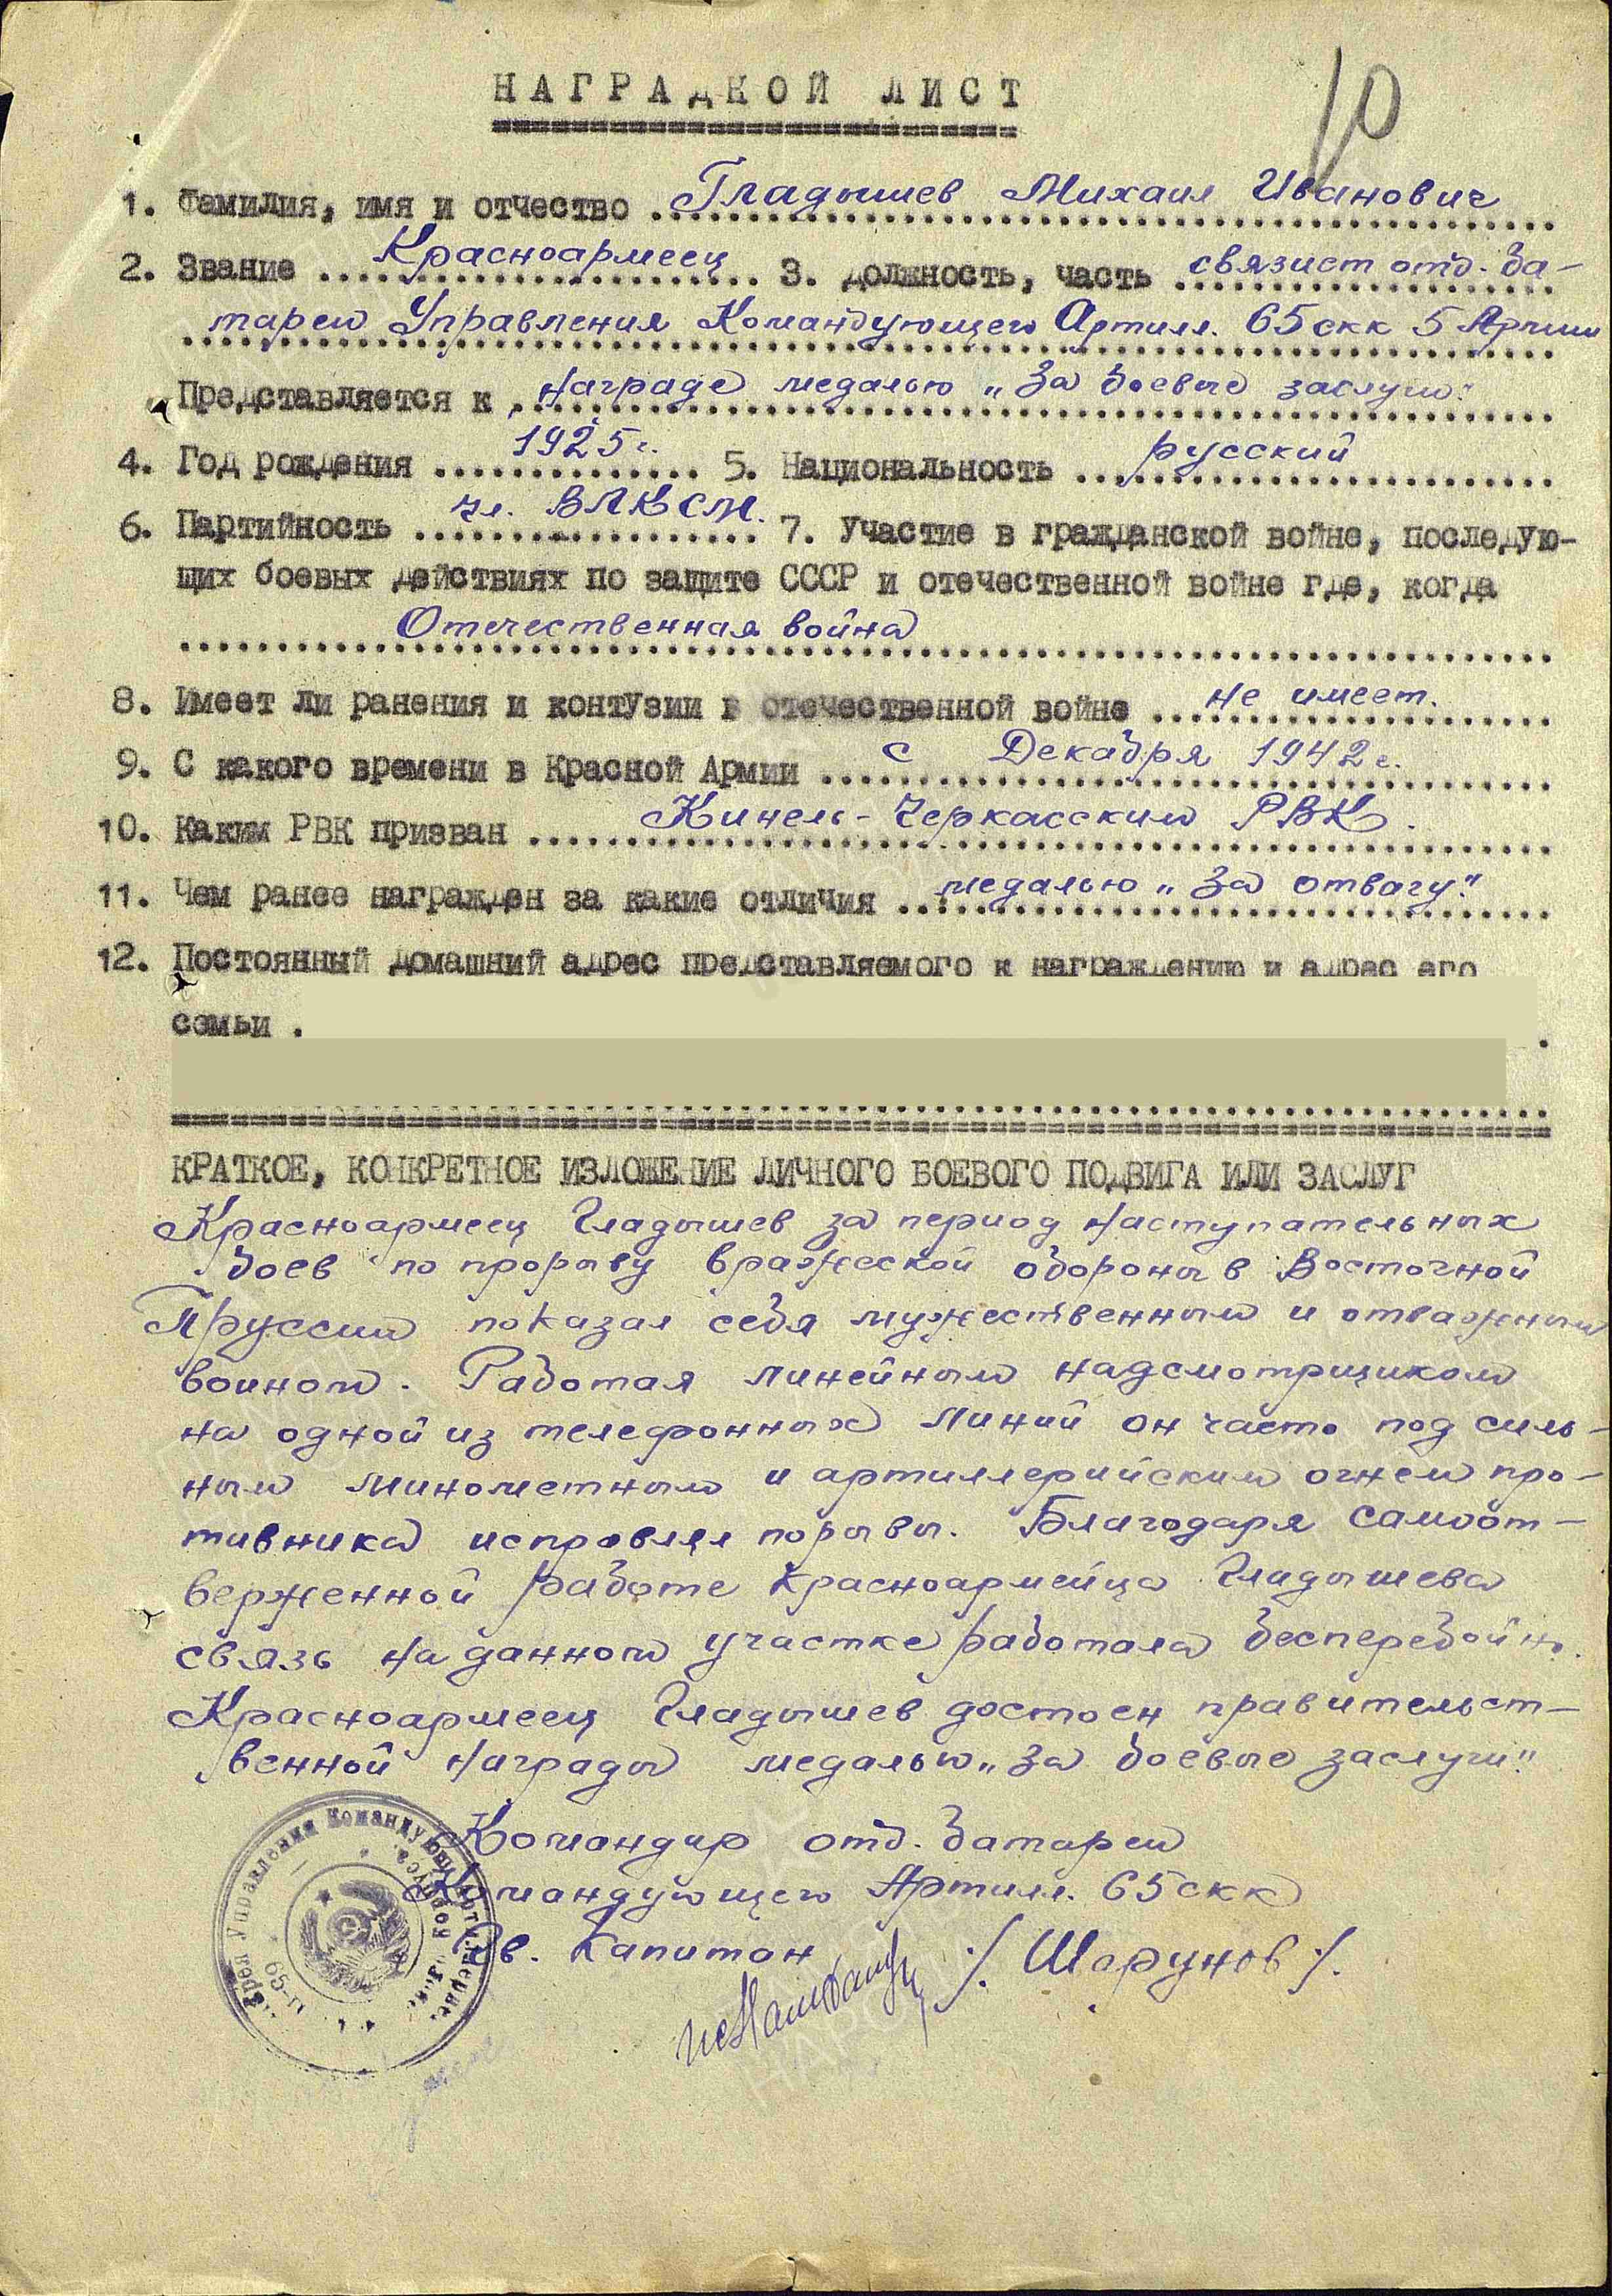 10
НАГРАДНОЙ ЛИСТ
1. Фамилия, имя и отчество Гладышев Михаил Иванович
2. Звание Красноармеец 3. должность, часть связист отд. ба-
тареи Управления Командующего Артилл. 65 скк 5 Армии
Представляется к награде медалью „За боевые заслуги“
4. Год рождения 1925 г. 5. Национальность русский
6. Партийность чл. ВЛКСМ. 7. Участие в гражданской войне, последую-
щих боевых действиях по защите СССР и отечественной войне где, когда
Отечественная война
8. Имеет ли ранения и контузии в отечественной войне не имеет.
9. С какого времени в Красной Армии с Декабря 1942 г.
10. Каким РВК призван Кинель-Черкасским РВК.
11. Чем ранее награжден за какие отличия медалью „За отвагу“
12. Постоянный домашний адрес представляемого к награждению и адрес его
семьи
КРАТКОЕ, КОНКРЕТНОЕ ИЗЛОЖЕНИЕ ЛИЧНОГО БОЕВОГО ПОДВИГА ИЛИ ЗАСЛУГ
Красноармеец Гладышев за период наступательных
боев по прорыву вражеской обороны в Восточной
Пруссии показал себя мужественным и отважным
воином. Работая линейным надсмотрщиком
на одной из телефонных линий он часто под силь-
ным минометным и артиллерийским огнем про-
тивника исправлял порывы. Благодаря самоот-
верженной работе красноармейца Гладышева
связь на данном участке работала бесперебойно.
Красноармеец Гладышев достоен правительст-
венной награды медалью „За боевые заслуги“
Командир отд. батареи
Командующего Артилл. 65 скк
Гв. Капитан /Шарунов/.